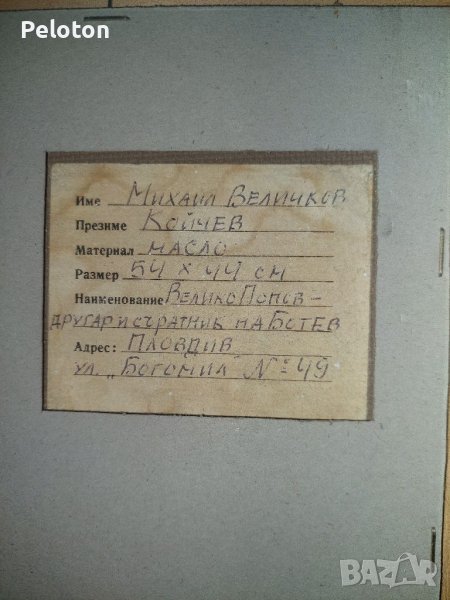 Peloton
Име Михаил Величков
Презиме Койчев
Материал масло
Размер 54 х 44 см
Наименование Велико Попов -
другар и съратник на Ботев
Адрес: Пловдив
ул. „Богомил" № 49
BAZAR